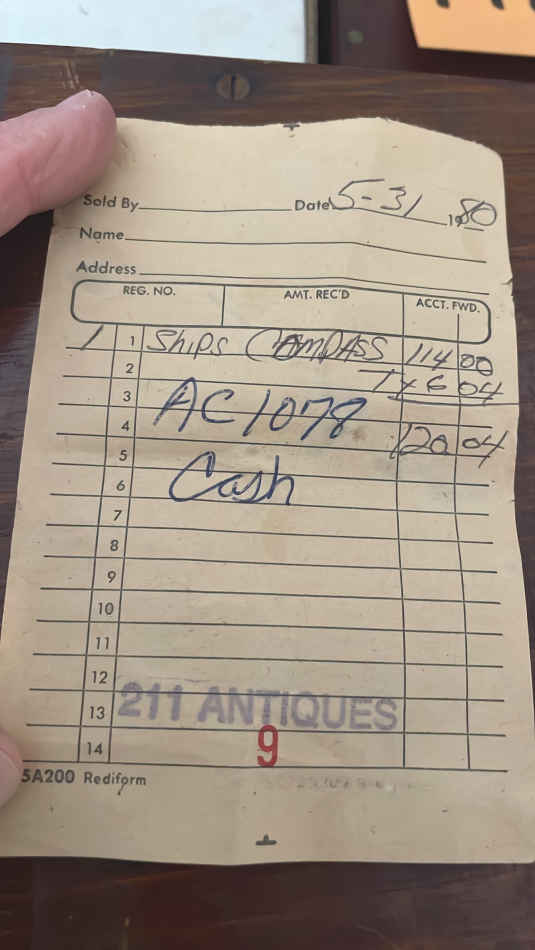 Sold By Date 5-31 1980
Name
Address
REG. NO. AMT. REC'D ACCT. FWD.
1 1 Ships COMPASS 114 00
2 TX 6 04
3 AC1078
4 120 04
5
6 Cash
7
8
9
10
11
12
13 211 ANTIQUES
14 9
5A200 Rediform